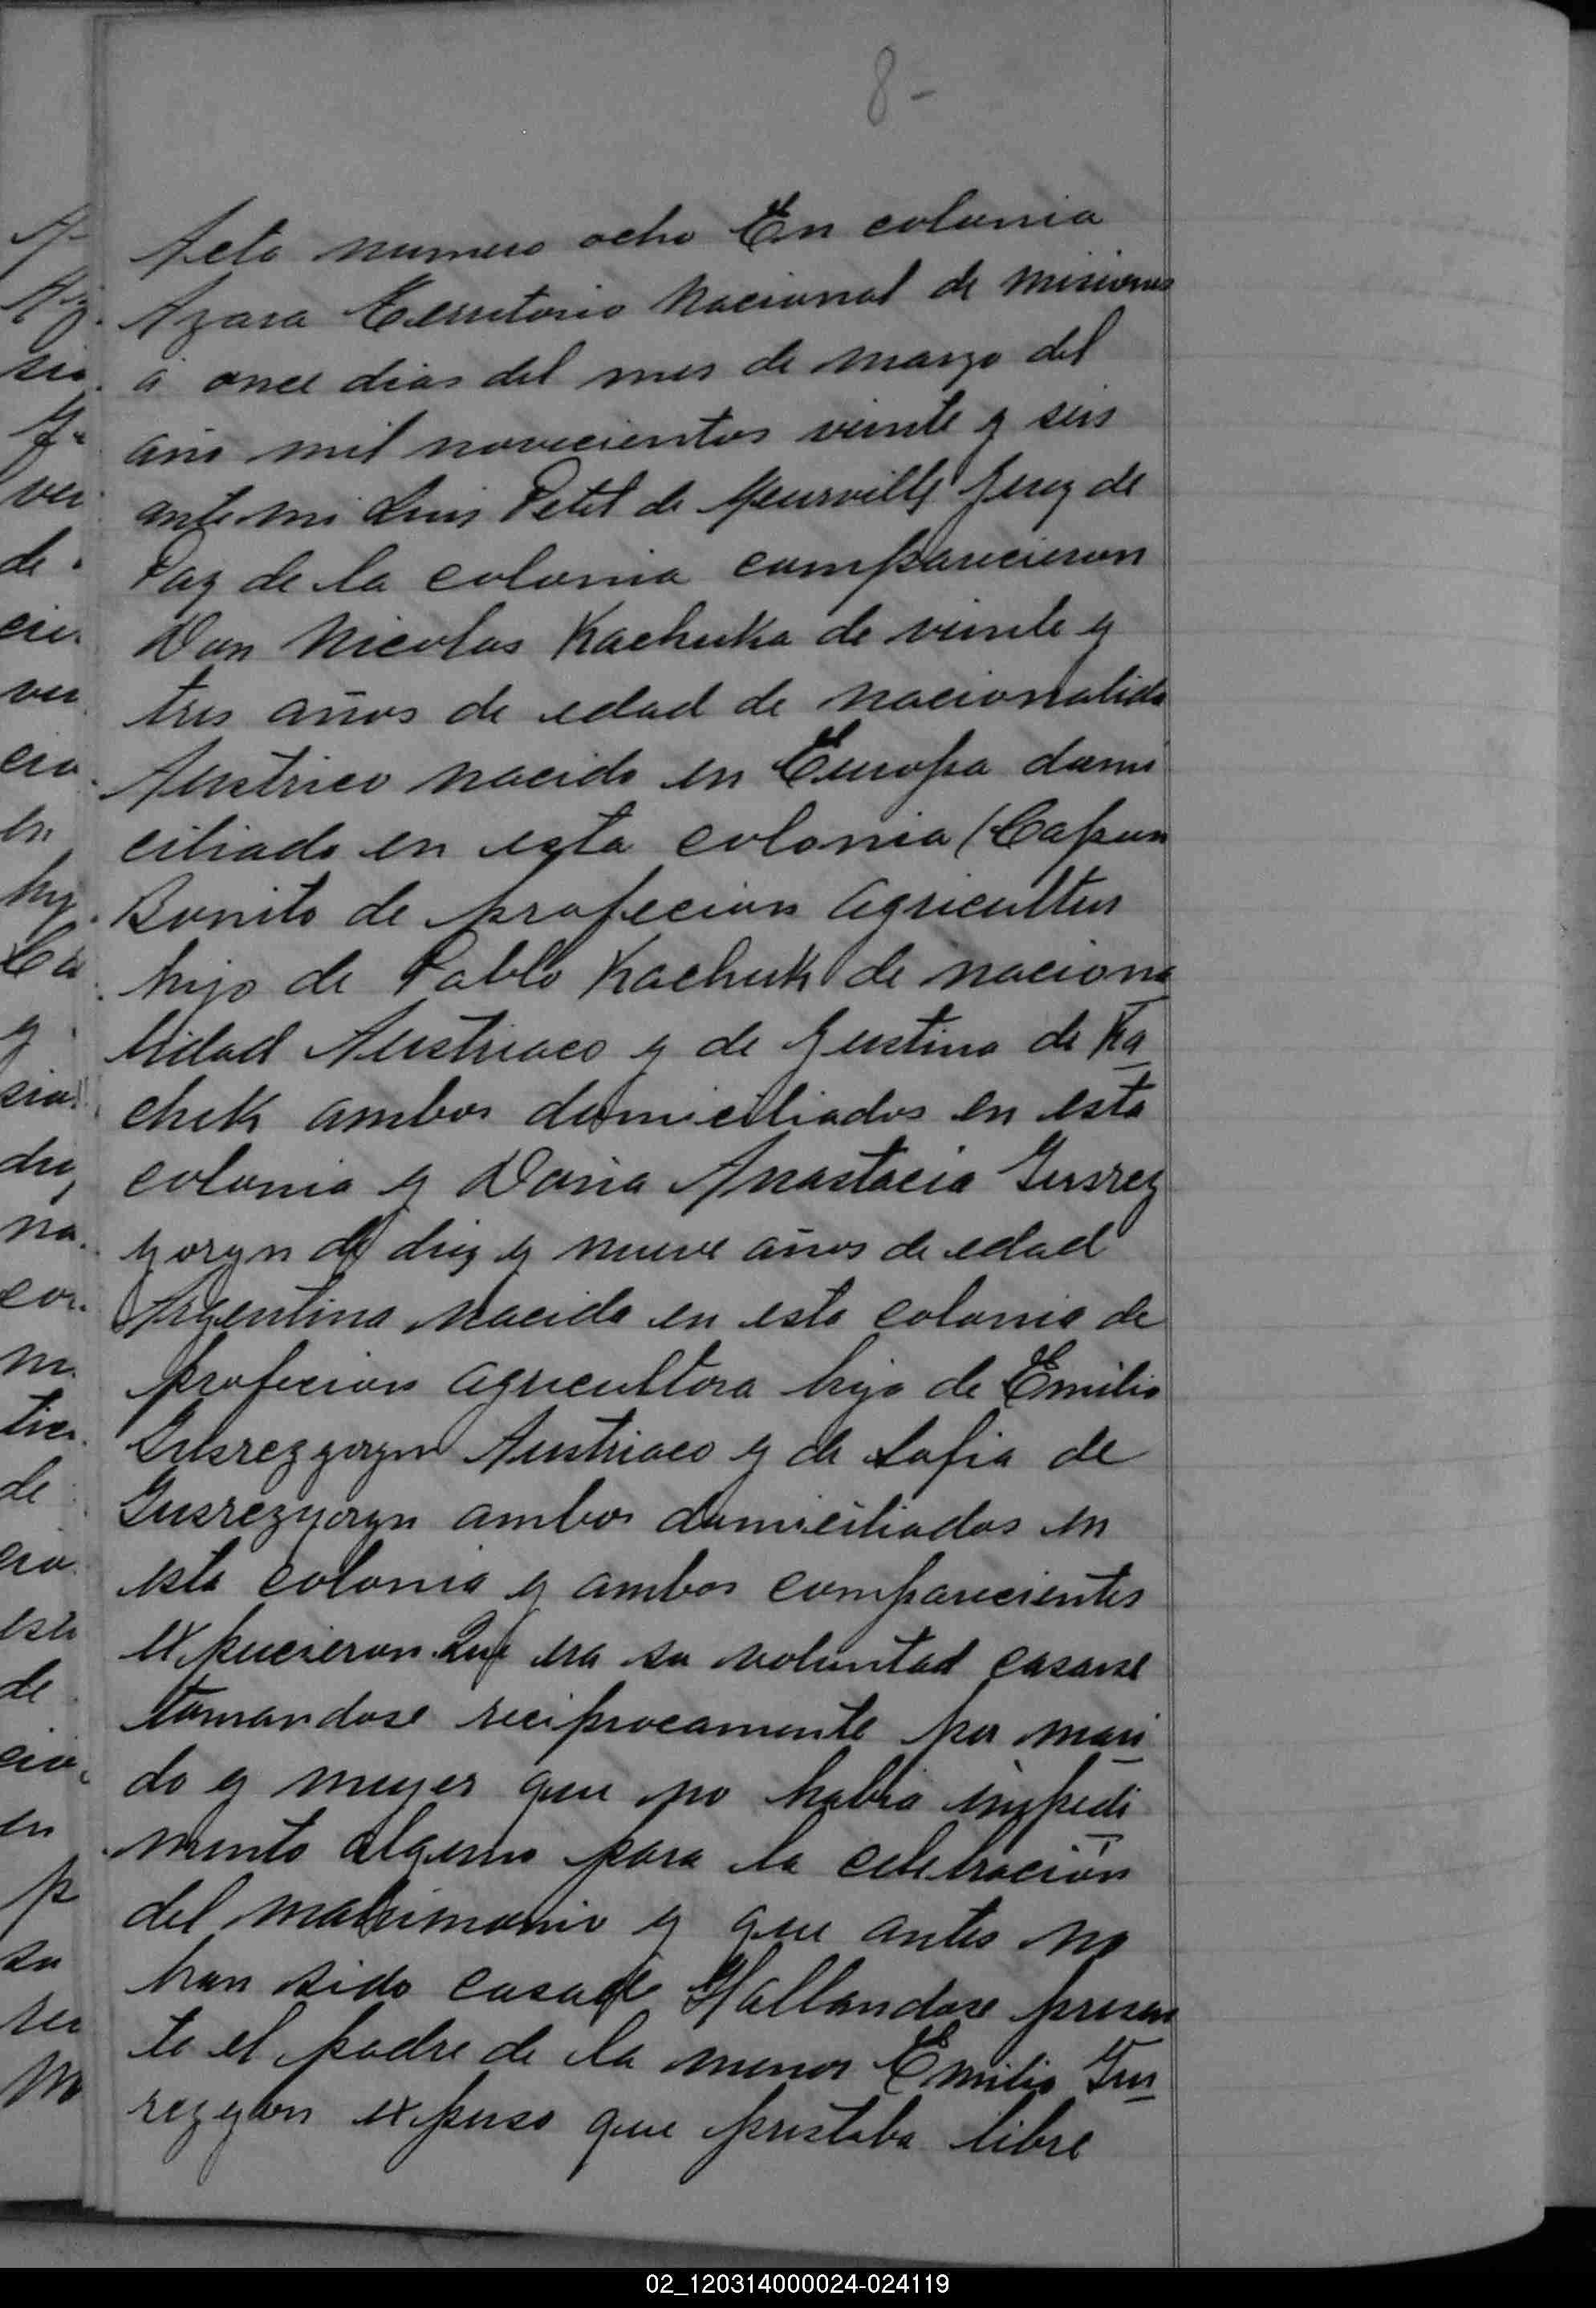 8-
Acta numero ocho En colonia
Azara Territorio Nacional de Misiones
á once dias del mes de marzo del
año mil novecientos veinte y seis
ante mi Luis Petit de Meurville Juez de
Paz de la colonia comparecieron
Don Nicolas Kachuka de veinte y
tres años de edad de nacionalida
Austrico nacido en Europa domi
ciliado en esta colonia (Capun
Bonito de profecion agricultur
hijo de Pablo Kachuk de naciona
lidad Austriaco y de Justina de Ka
chuk ambos domiciliados en esta
colonia y Doña Anastacia Gusrez
yoryn de diez y nueve años de edad
Argentina nacida en esta colonia de
profecion agricultora hija de Emilio
Gusrezyoryn Austriaco y de Sofia de
Gusrezyoryn ambos domiciliados en
esta colonia y ambos comparecientes
expucieron Que era su voluntad casarse
tomandose reciprocamente por mari
do y mujer que no habia impedi
mento alguno para la celebración
del matrimonio y que antes no
han sido casado Hallandose presen
te el padre de la menor Emilio Gus
rezyon expuso que prestaba libre
02_120314000024-024119